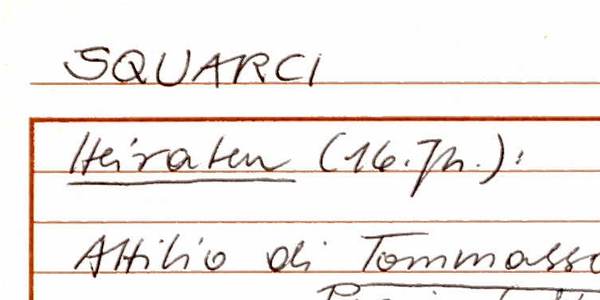 SQUARCI
Heiraten (16. Jh.):
Attilio di Tommasso